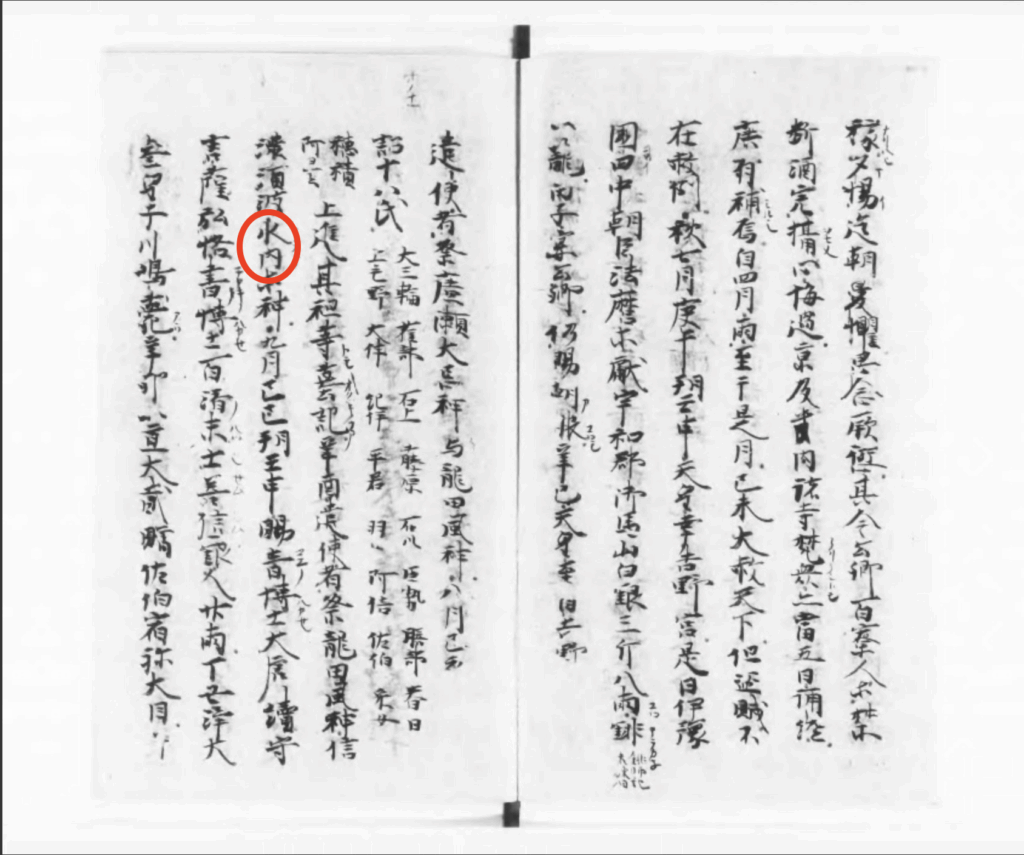 稼夕惕迄朝憂懼思念厥愆其令公卿百寮人等禁
断酒宍攝心悔過京及畿内諸寺梵衆亦當五日誦経
庶有補焉自四月雨至于是月己未大赦天下但盗賊不
在赦例秋七月庚午朔壬申天皇幸吉野宮是日伊豫
國田中朝臣法麿等献宇和郡御馬山白銀三斤八兩
一籠丙子宴公卿仍賜朝服辛巳天皇至自吉野
遣使者祭廣瀬大忌神与龍田風神八月己亥
詔十八氏
大三輪 雀部 石上 藤原 石川 巨勢 膳部 春日
上毛野 大伴 紀伊 平群 羽田 阿倍 佐伯 采女
穂積
阿曇
上進其祖等墓記辛酉遣使者祭龍田風神信
濃須波水内等神九月己巳朔壬申賜音博士大唐續守
言薩弘恪書博士百済末士善信銀人廿兩丁丑浄大
參皇子川嶋薨辛卯以直大貳贈佐伯宿祢大目